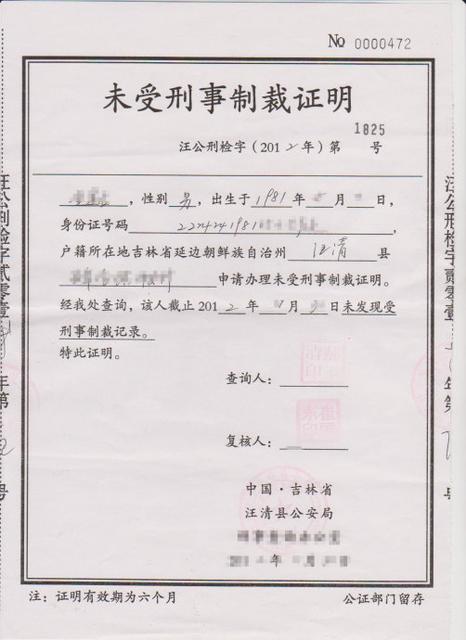 No 0000472
未受刑事制裁证明
1825
汪公刑检字（2012年）第 号
，性别 男，出生于1981年 月 日，
身份证号码 2224241981 ，
户籍所在地吉林省延边朝鲜族自治州 汪清 县
申请办理未受刑事制裁证明。
经我处查询，该人截止2012年 月 日未发现受
刑事制裁记录。
特此证明。
查询人：
复核人：
中国·吉林省
汪清县公安局
年 月 日
注：证明有效期为六个月 公证部门留存
汪公刑检字贰零壹 年第 号
汪公刑检字贰零壹 年第 号